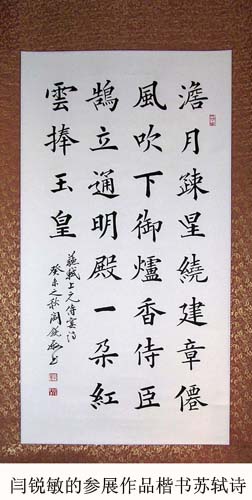 澹月疎星繞建章僊
風吹下御爐香侍臣
鵠立通明殿一朵紅
雲捧玉皇
蘇軾上元侍宴詩
癸未之秋閆銳敏书
闫锐敏的参展作品楷书苏轼诗